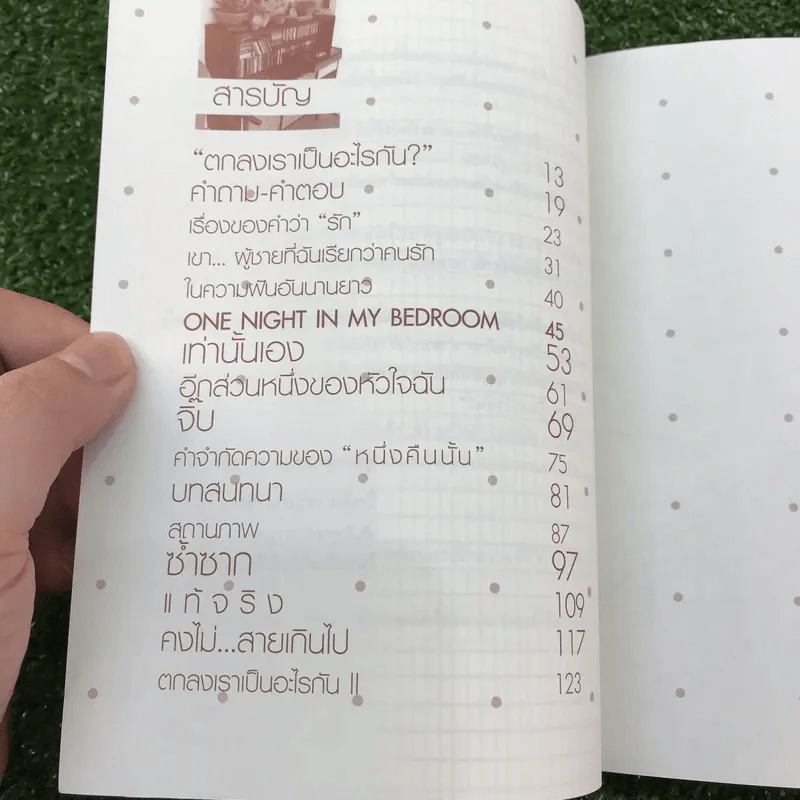 สารบัญ
“ตกลงเราเป็นอะไรกัน?” 13
คำถาม-คำตอบ 19
เรื่องของคำว่า “รัก” 23
เขา... ผู้ชายที่ฉันเรียกว่าคนรัก 31
ในความฝันอันนานยาว 40
ONE NIGHT IN MY BEDROOM 45
เท่านั้นเอง 53
อีกส่วนหนึ่งของหัวใจฉัน 61
จิ๊บ 69
คำจำกัดความของ “หนึ่งคืนนั้น” 75
บทสนทนา 81
สถานภาพ 87
ซ้ำซาก 97
แท้จริง 109
คงไม่...สายเกินไป 117
ตกลงเราเป็นอะไรกัน II 123